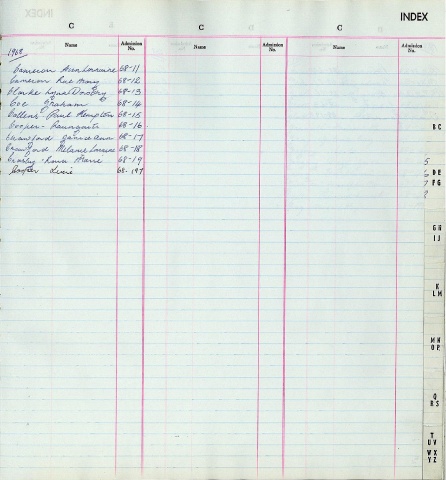 INDEX
C C C
Name Admission No. Name Admission No. Name Admission No.
1968
Cameron Ann Lorraine 68-11
Cameron Rae Mary 68-12
Clarke Dorothy 68-13
Coe Graham 68-14
Collens - Paul Kempton 68-15
Cooper - 68-16
Crawford Janice Ann 68-17
Crawford Melanie Lorraine 68-18
Crosby - 68-19
Cooper 68-197
B C
D E
F G
G H
I J
K
L M
M N
O P
Q
R S
T
U V
W X
Y Z